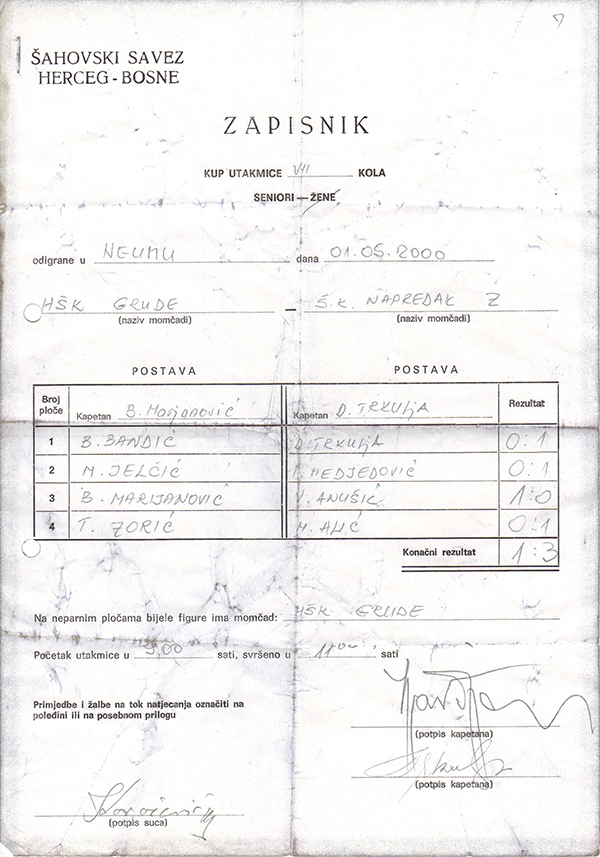 ŠAHOVSKI SAVEZ
HERCEG - BOSNE
ZAPISNIK
KUP UTAKMICE VII KOLA
SENIORI — ŽENE
odigrane u NEUMU dana 01.05.2000
HŠK GRUDE — Š.K. NAPREDAK Z
(naziv momčadi) (naziv momčadi)
POSTAVA POSTAVA
Broj ploče Kapetan B. Marjanović Kapetan D. TRKULJA Rezultat
1 B. BANDIĆ D. TRKULJA 0:1
2 M. JELČIĆ MEDJEDOVIĆ 0:1
3 B. MARIJANOVIĆ V. ANUŠIĆ 1:0
4 T. ZORIĆ M. ALIĆ 0:1
Konačni rezultat 1:3
Na neparnim pločama bijele figure ima momčad: HŠK GRUDE
Početak utakmice u 9,00 sati, svršeno u 11 00 sati
Primjedbe i žalbe na tok natjecanja označiti na
poledini ili na posebnom prilogu
(potpis kapetana)
(potpis kapetana)
(potpis suca)